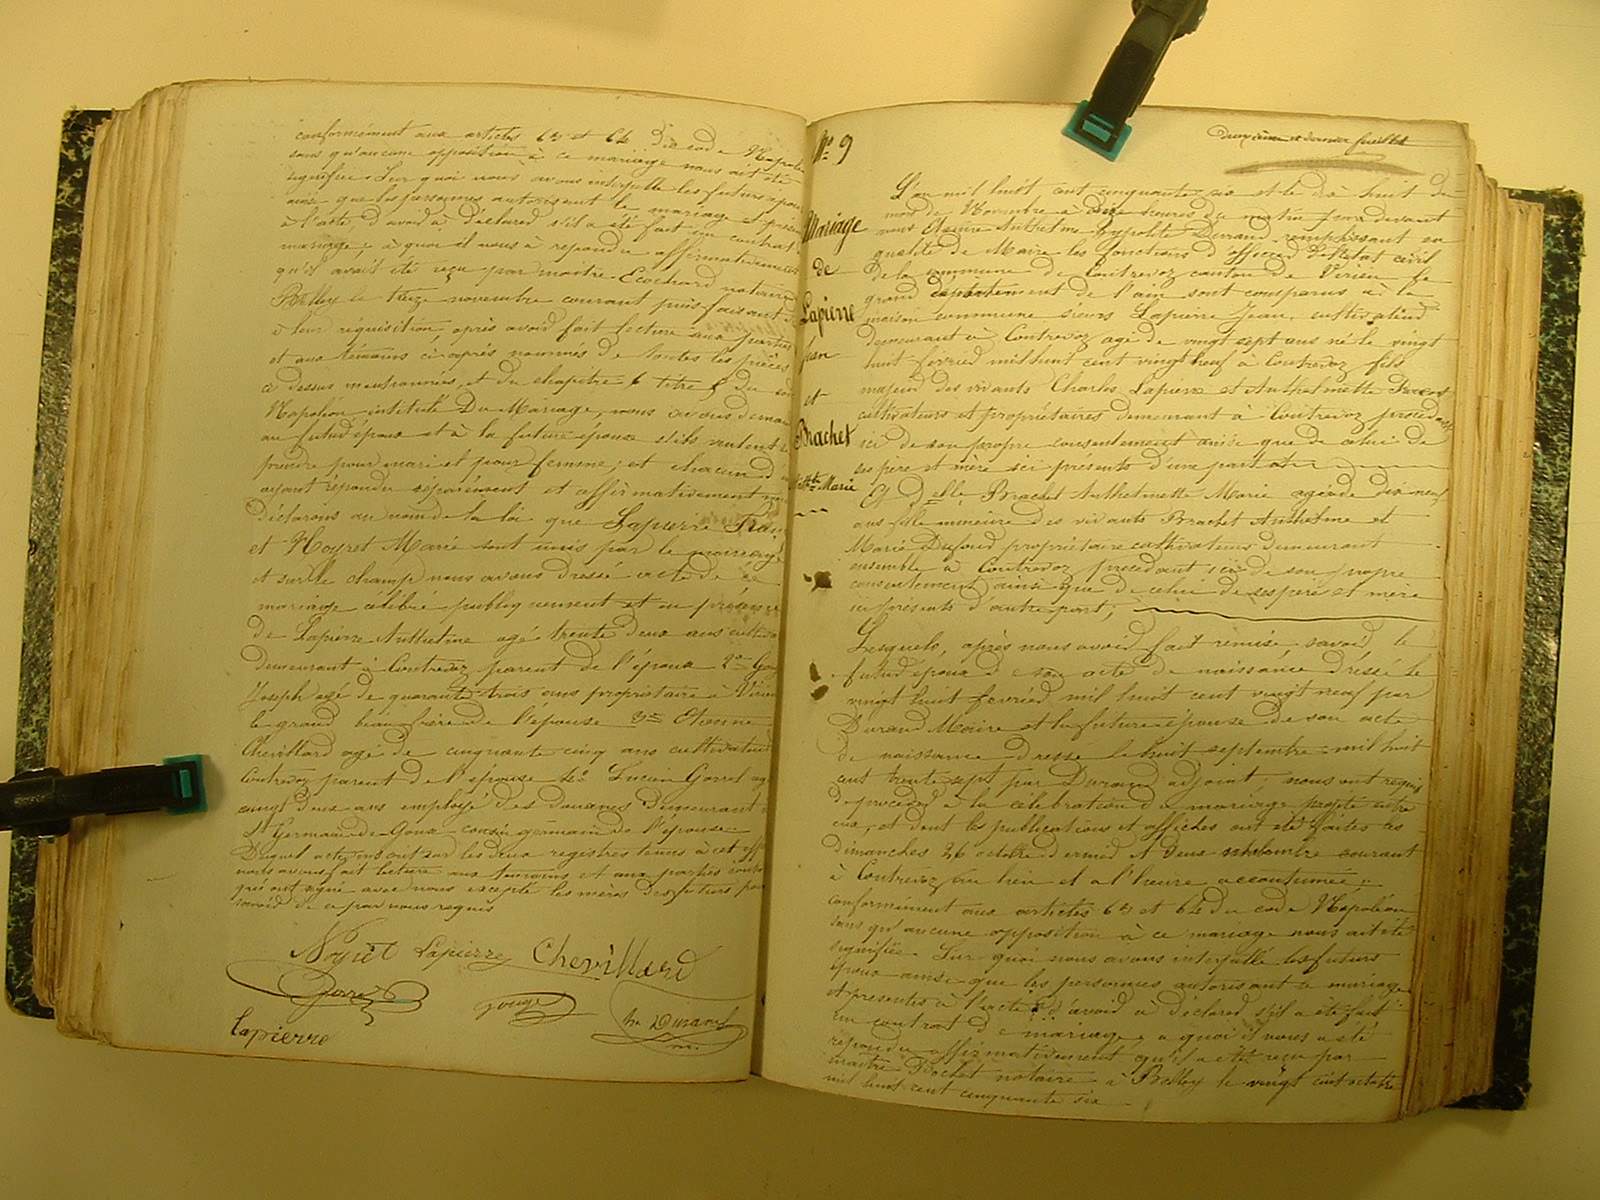 conformément aux articles 63 et 64 du code Napoléon
sans qu'aucune opposition à ce mariage nous ait été
signifiée. Sur quoi nous avons interpellé les futurs époux
ainsi que les personnes autorisant le mariage et présen
à l'acte, d'avoir à déclarer s'il a été fait un contrat
mariage, à quoi il nous a répondu affirmativement
qu'il avait été reçu par maître Ecochard notaire
Belley le treize novembre courant puis faisant
à leur réquisition, après avoir fait lecture aux parties
et aux témoins ci-après nommés de toutes les pièces
ci dessus mentionnées, et du chapitre 6 titre 5 du
Napoléon intitulé Du Mariage, nous avons deman
au futur époux et à la future épouse s'ils veulent
prendre pour mari et pour femme; et chacun d
ayant répondu séparément et affirmativement
déclarons au nom de la loi que Lapierre Fran
et Noyret Marie sont unis par le mariage
et sur le champ nous avons dressé acte de ce
mariage célébré publiquement et en présence
de Lapierre Anthelme agé trente deux ans cultiva
demeurant à Contrevoz parent de l'époux 2°
Joseph agé de quarante trois ans propriétaire à Virieu
le grand beau frère de l'épouse 3° Etienne
Chevillard agé de cinquante cinq ans cultivateur
Contrevoz parent de l'épouse 4° Lucien Gorrel ag
vingt deux ans employé des douanes demeurant
St Germain-de-Joux cousin germain de l'épouse
Duquel acte inscrit sur les deux registres tenus à cet eff
nous avons fait lecture aux témoins et aux parties
qui ont signé avec nous excepté les mères des futurs pour
savoir de ce par nous requis
Noyret Lapierre Chevillard
Lapierre
N° 9
Mariage
de
Lapierre
Jean
et
Brachet
Anth.tte Marie
Deuxième et dernier feuillet
L'an mil huit cent cinquante six et le dix huit du
mois de Novembre à onze heures du matin par devant
nous Etienne Anthelme hyppolite Durand remplissant en
qualité de Maire les fonctions d'officier de l'état civil
de la commune de Contrevoz canton de Virieu le
grand département de l'ain sont comparus à la
maison commune sieurs Lapierre Jean, cultivateur
demeurant à Contrevoz agé de vingt sept ans né le vingt
huit février mil huit cent vingt neuf à Contrevoz fils
majeur des vivants Charles Lapierre et Anthelmette
cultivateurs et propriétaires demeurant à Contrevoz procédant
ici de son propre consentement ainsi que de celui de
ses père et mère ici présents d'une part et
Et D.elle Brachet Anthelmette Marie agée de dix neuf
ans fille mineure des vivants Brachet Anthelme et
Marie Dufour propriétaire cultivateurs demeurant
ensemble à Contrevoz procédant ici de son propre
consentement ainsi que de celui de ses père et mère
ici présents d'autre part;
Lesquels, après nous avoir fait remise, savoir, le
futur époux de son acte de naissance dressé le
vingt huit février mil huit cent vingt neuf par
Durand Maire et la future épouse de son acte
de naissance dressé le huit septembre mil huit
cent trente sept par Durand adjoint; nous ont requis
de procéder à la célébration du mariage projeté entre
eux, et dont les publications et affiches ont été faites les
dimanches 26 octobre dernier et deux novembre courant
à Contrevoz au lieu et à l'heure accoutumée;
conformément aux articles 63 et 64 du code Napoléon
sans qu'aucune opposition à ce mariage nous ait été
signifiée. Sur quoi nous avons interpellé les futurs
époux ainsi que les personnes autorisant le mariage
et présentes à l'acte d'avoir à déclarer s'il a été fait
un contrat de mariage, à quoi il nous a été
répondu affirmativement qu'il a été reçu par
maître Rochet notaire à Belley le vingt cinq octobre
mil huit cent cinquante six